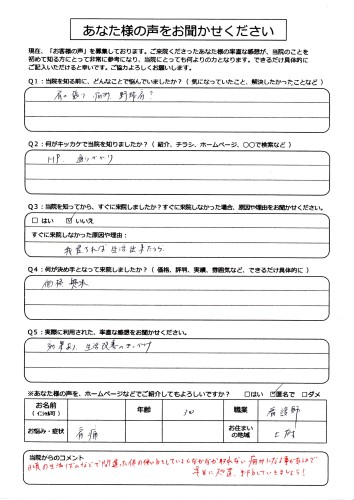 あなた様の声をお聞かせください
現在、「お客様の声」を募集しております。ご来院くださったあなた様の率直な感想が、当院のことを
初めて知る方にとって非常に参考になり、当院にとっても何よりの力となります。できるだけ具体的に
ご記入いただけると幸いです。ご協力よろしくお願いします。
Q1：当院を知る前に、どんなことで悩んでいましたか？（ 気になっていたこと、解決したかったことなど ）
肩の張り 痛み
Q2：何がキッカケで当院を知りましたか？（ 紹介、チラシ、ホームページ、○○で検索など ）
HP. 通りがかり
Q3：当院を知ってから、すぐに来院しましたか？すぐに来院しなかった場合、原因や理由をお聞かせください。
□ はい ☑ いいえ
すぐに来院しなかった原因や理由：
我慢すれば生活出来たから.
Q4：何が決め手となって来院しましたか？（ 価格、評判、実績、雰囲気など、できるだけ具体的に ）
価格
Q5：実際に利用された、率直な感想をお聞かせください。
効果あり、生活改善のきっかけ
※あなた様の声を、ホームページなどでご紹介してもよろしいですか？ □はい ☑匿名で □ダメ
お名前 年齢 30 職業 看護師
（ イニシャル可 ）
お悩み・症状 肩痛 お住まいの地域
当院からのコメント
日頃の生活
早目に